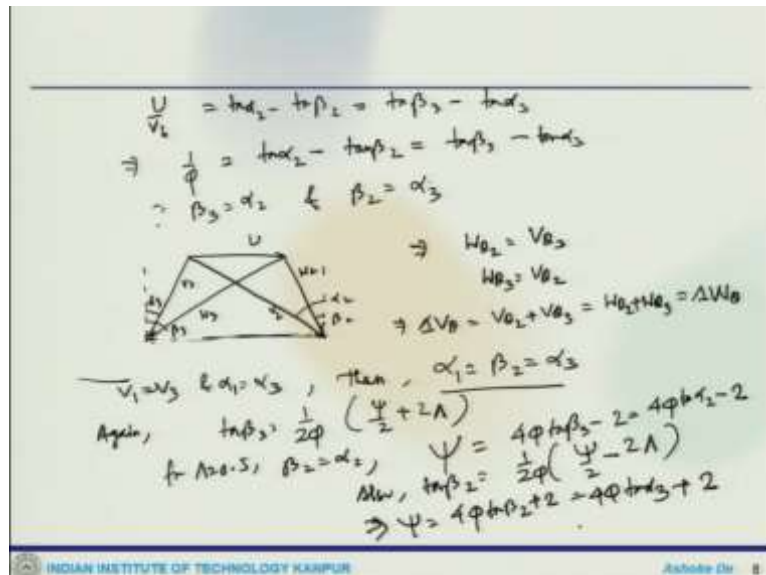 U/V₂ = tanα₂ - tanβ₂ = tanβ₃ - tanα₃
⇒ 1/φ = tanα₂ - tanβ₂ = tanβ₃ - tanα₃
∴ β₃ = α₂ & β₂ = α₃
U
V₃ W₃ V₂ α₃ β₃ α₂ β₂
⇒ Wθ₂ = Vθ₃
Wθ₃ = Vθ₂
⇒ ΔVθ = Vθ₂ + Vθ₃ = Wθ₂ + Wθ₃ = ΔWθ
V₁ = V₃ & α₁ = α₃, then, α₁ = β₂ = α₃
Again, tanβ₃ = 1/2φ (ψ/2 + 2Λ)
for Λ = 0.5, β₂ = α₂, ψ = 4φ tanβ₃ - 2 = 4φ tanα₂ - 2
Also, tanβ₂ = 1/2φ (ψ/2 - 2Λ)
⇒ ψ = 4φ tanβ₂ + 2 = 4φ tanα₃ + 2
INDIAN INSTITUTE OF TECHNOLOGY KANPUR
Ashoke De 8